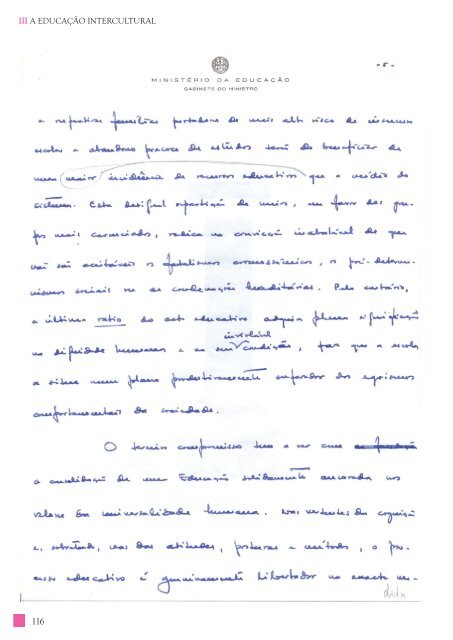 III A EDUCAÇÃO INTERCULTURAL
- 5 -
MINISTÉRIO DA EDUCAÇÃO
GABINETE DO MINISTRO
e respectivas famílias portadores de mais alto risco de insucesso
escolar e abandono precoce de estudos terão de beneficiar de
uma maior incidência de recursos educativos que a média do
sistema. Esta desigual repartição de meios, em favor dos gru-
pos mais carenciados, radica na convicção inabalável de que
não são aceitáveis os fatalismos cromossómicos, os pré-determi-
nismos sociais ou as condenações hereditárias. Pelo contrário,
a última ratio do acto educativo adquire plena significação
na dignidade humana e na sua condição, faz que a escola
inviolável
se situe num plano produtivamente superador dos egoísmos
comportamentais da sociedade.
O terceiro compromisso tem a ver com
a consolidação de uma Educação solidamente ancorada nos
valores da universalidade humana. Nas vertentes da cognição
e, sobretudo, nas das atitudes, posturas e métodos, o pro-
cesso educativo é genuinamente libertador na exacta me-
dida
116